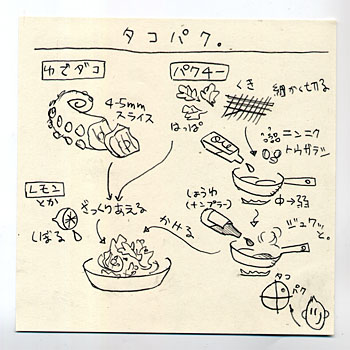 タコパク。
ゆでダコ
4-5mm
スライス
パクチー
はっぱ
くき
細かく切る
ニンニク
トウガラシ
中→弱
レモン
とか
しぼる
ざっくりあえる
しょうゆ
(ナンプラー)
ジュワッと。
かける
タコ
パク